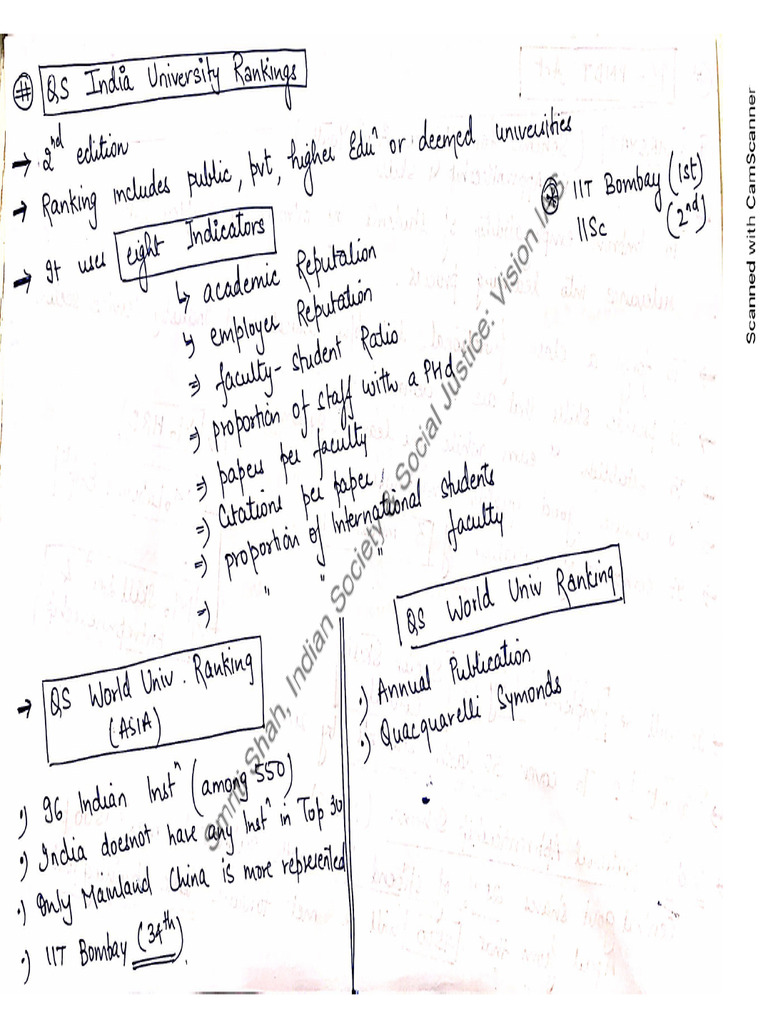 # QS India University Rankings
→ 2nd edition
→ Ranking includes public, pvt, higher Eduⁿ or deemed universities
→ It uses eight Indicators
* IIT Bombay (1st)
IISc (2nd)
↳ academic Reputation
↳ employer Reputation
⇒ faculty-student Ratio
⇒ proportion of staff with a PHd
⇒ papers per faculty
⇒ Citations per paper
⇒ proportion of International students
⇒ " " " faculty
→ QS World Univ. Ranking
(ASIA)
·) 96 Indian Instⁿ (among 550)
·) India doesnot have any Instⁿ in Top 30
·) Only Mainland China is more represented
·) IIT Bombay (34th).
QS World Univ Ranking
·) Annual Publication
·) Quacquarelli Symonds
Smriti Shah, Indian Society & Social Justice: Vision IAS
Scanned with CamScanner